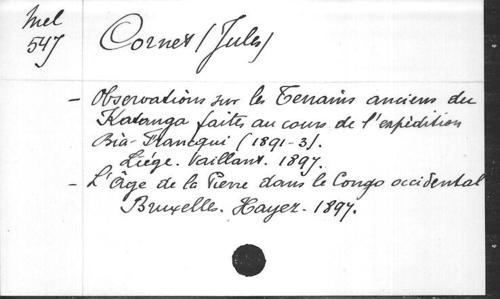 Mel
547
Cornet (Jules)
- Observations sur les Terrains anciens du
Katanga faites au cours de l'expédition
Bia-Francqui (1891-3).
Liége. Vaillant. 1897.
- L'Âge de la Pierre dans le Congo occidental
Bruxelles. Hayez. 1897.